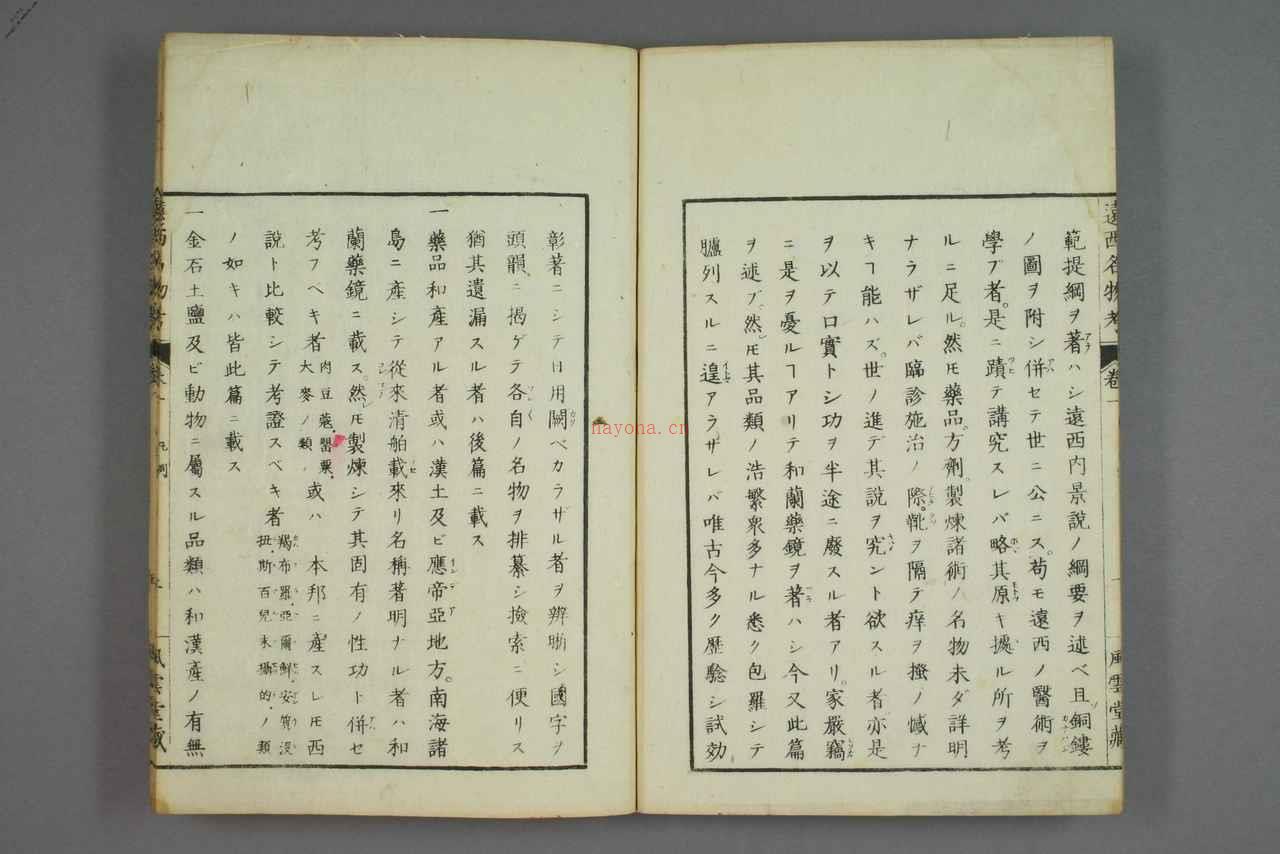 遠西名物考 卷一 風雲堂藏
範提綱ヲ著ハシ遠西内景説ノ綱要ヲ述ベ且銅鏤
ノ圖ヲ附シ併セテ世ニ公ニス。苟モ遠西ノ醫術ヲ
學ブ者。是ニ蹟テ講究スレバ略其原キ據ル所ヲ考
ルニ足ル。然ㇳモ藥品。方劑。製煉諸術ノ名物未ダ詳明
ナラザレバ臨診施治ノ際。靴ヲ隔テ痒ヲ搔ノ憾ナ
キヿ能ハズ。世ノ進デ其説ヲ究ント欲スル者亦是
ヲ以テ口實トシ功ヲ半途ニ廢スル者アリ。家嚴竊
ニ是ヲ憂ルヿアリテ和蘭藥鏡ヲ著ハシ今又此篇
ヲ述ブ。然ㇾㇳモ其品類ノ浩繁衆多ナル悉ク包羅シテ
臚列スルニ遑アラザレバ唯古今多ク歴驗シ試効
彰著ニシテ日用闕ベカラザル者ヲ辨晰シ國字ヲ
頭韻ニ揭ゲテ各自ノ名物ヲ排纂シ撿索ニ便リス
猶其遺漏スル者ハ後篇ニ載ス
一藥品和產アル者或ハ漢土及ビ應帝亞地方。南海諸
島ニ產シテ從來淸舶載來リ名稱著明ナル者ハ和
蘭藥鏡ニ載ス。然ㇾㇳモ製煉シテ其固有ノ性功ト併セ
考フヘキ者 肉豆蔲。罌粟。大麥ノ類 或ハ 本邦ニ產スレㇳモ西
説ト比較シテ考證スベキ者 羯布羅。亞爾鮮。安質沒扭。斯百兒末攝的。ノ類
ノ如キハ皆此篇ニ載ス
一金石土鹽及ビ動物ニ屬スル品類ハ和漢產ノ有無
凡例
hayona.cn